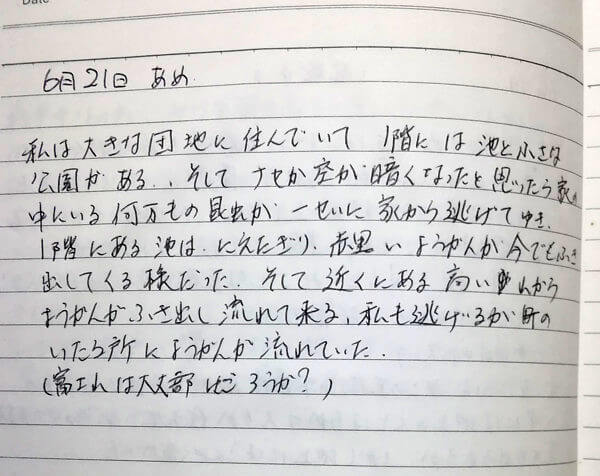 Date
6月21日 あめ.
私は大きな団地に住んでいて 1階には池と小さな
公園がある.. そして ナゼか空が暗くなったと思ったら家の
中にいる何万もの昆虫が一せいに家から逃げてゆき.
1階にある池は.にえたぎり.赤黒いようがんが今でもふき
出してくる様だった. そして近くにある高い山から
ようがんがふき出し流れて来る、私も逃げるが町の
いたる所にようがんが流れていた.
(富士山は大丈部だろうか?)